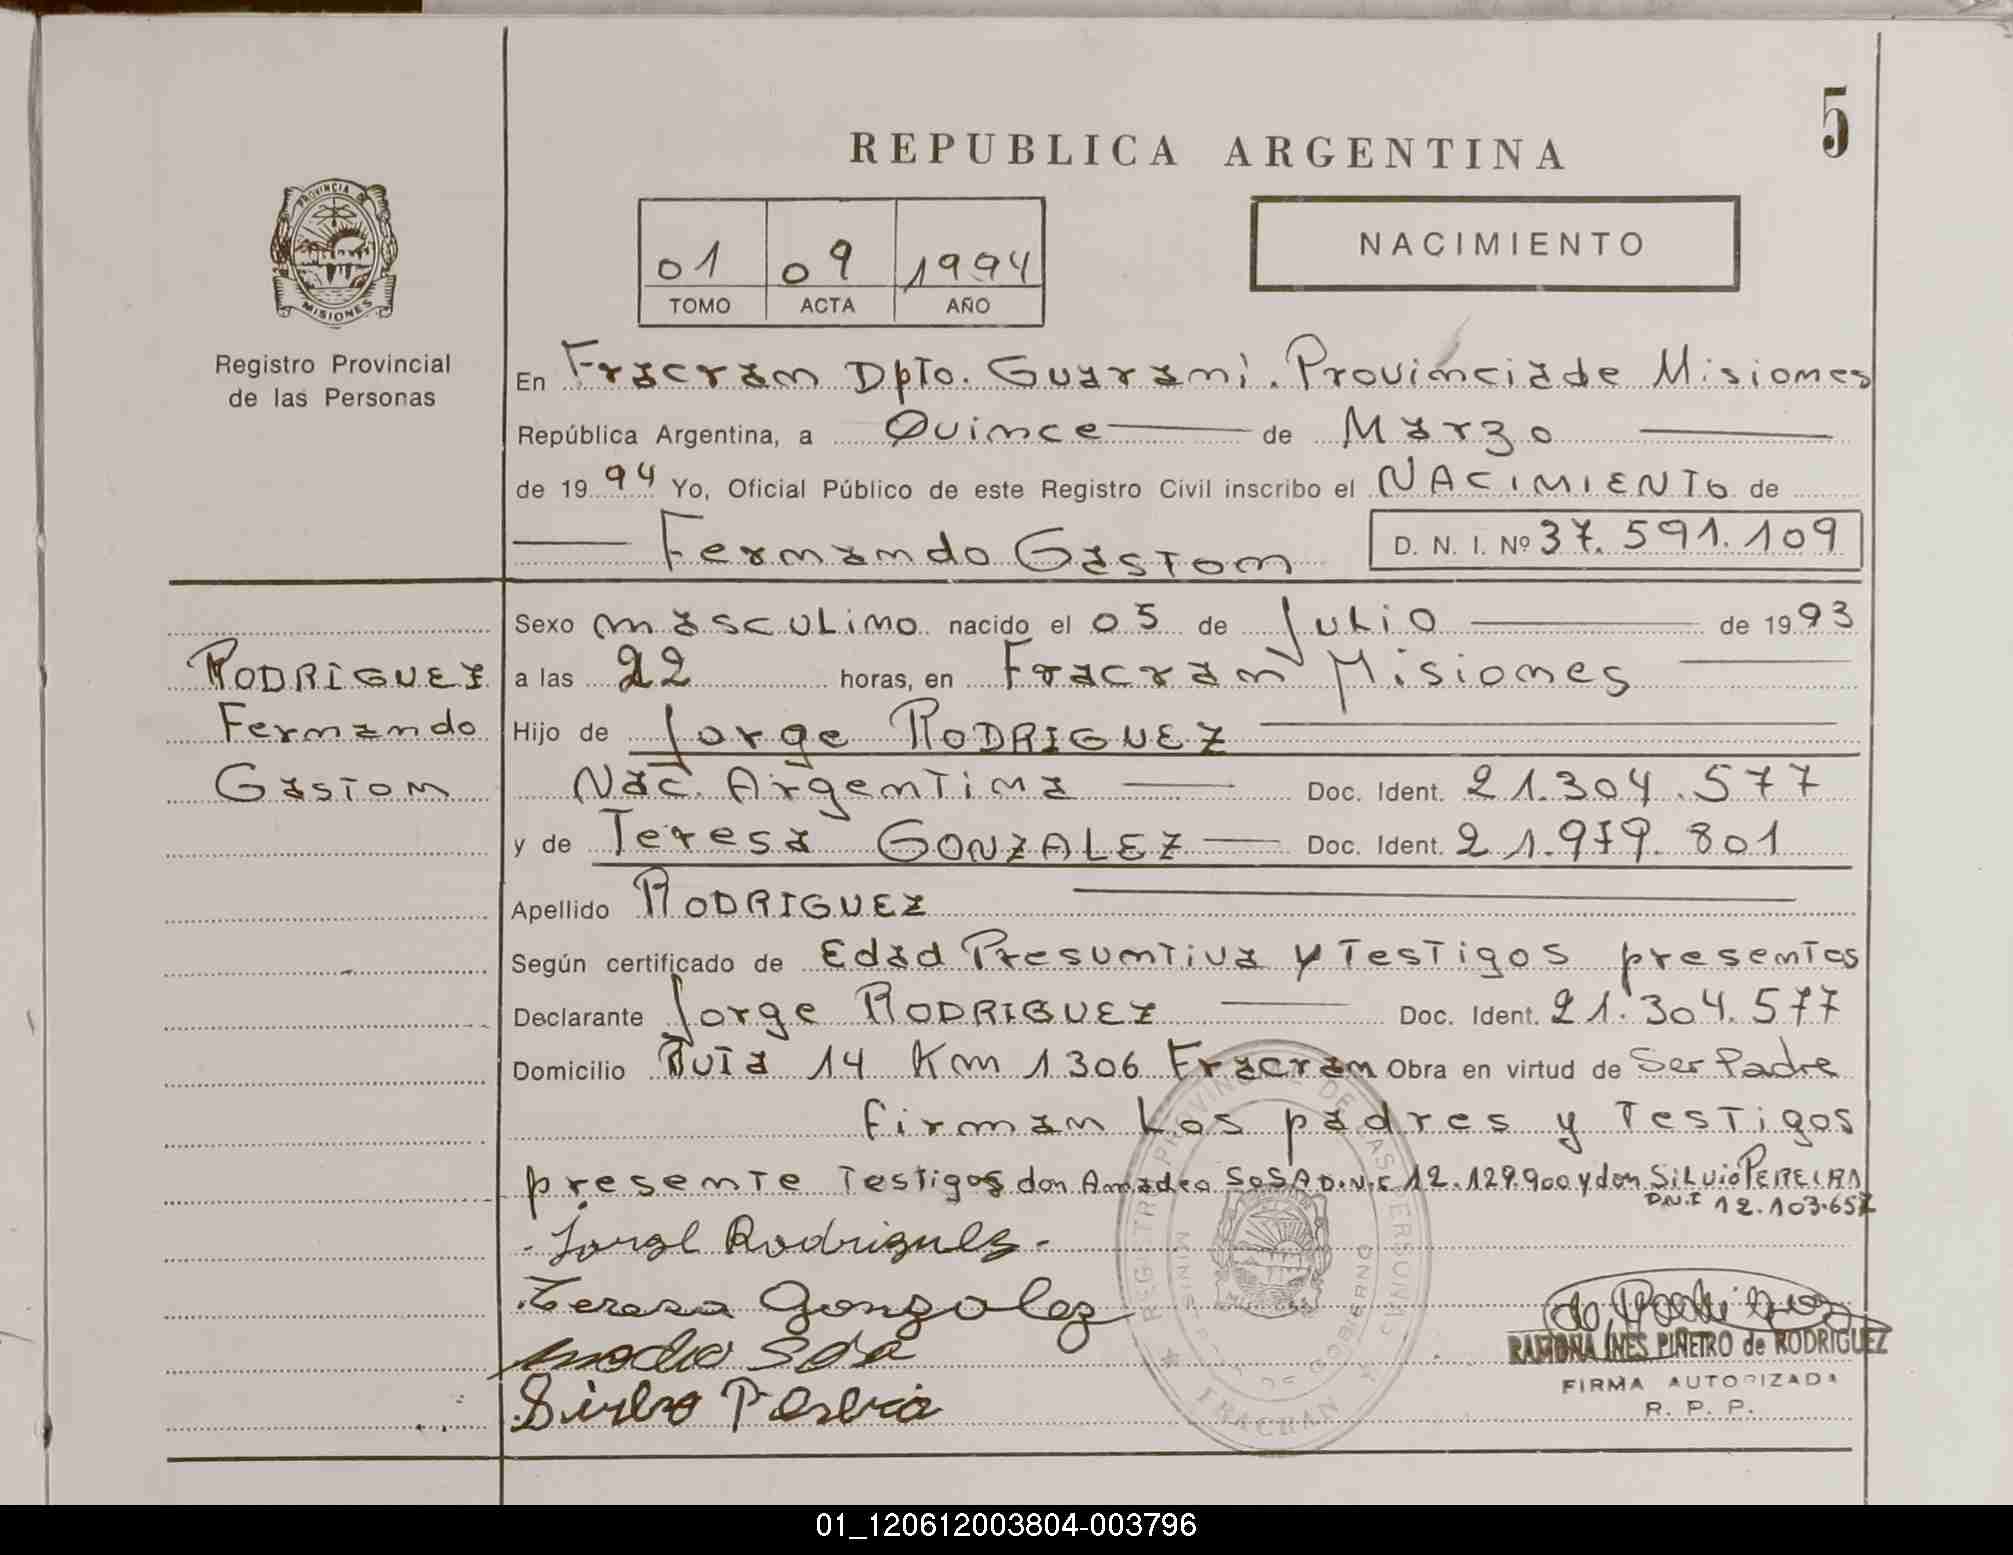 5
REPUBLICA ARGENTINA
PROVINCIA DE
MISIONES
Registro Provincial
de las Personas
01 09 1994
TOMO ACTA AÑO
NACIMIENTO
En Fracran Dpto. Guaraní. Provincia de Misiones
República Argentina, a Quince de Marzo
de 1994 Yo, Oficial Público de este Registro Civil inscribo el NACIMIENTO de
Fernando Gaston D. N. I. Nº 37.591.109
RODRIGUEZ
Fernando
Gaston
Sexo masculino nacido el 05 de Julio de 1993
a las 22 horas, en Fracran Misiones
Hijo de Jorge RODRIGUEZ
Nac. Argentina Doc. Ident. 21.304.577
y de Teresa GONZALEZ Doc. Ident. 21.979.801
Apellido RODRIGUEZ
Según certificado de Edad Presuntiva y Testigos presentes
Declarante Jorge RODRIGUEZ Doc. Ident. 21.304.577
Domicilio Ruta 14 Km 1306 Fracran Obra en virtud de Ser Padre
firman Los padres y Testigos
presente Testigos don Amadeo SOSA D.N.I 12.129.900 y don SiLvio PEREIRA
D.N.I 12.103.657
Jorge Rodriguez
Teresa Gonzalez
RAMONA INES PIÑEIRO de RODRIGUEZ
FIRMA AUTORIZADA
R. P. P.
REGISTRO PROVINCIAL DE LAS PERSONAS
MINISTERIO DE GOBIERNO
FRACRAN
01_120612003804-003796